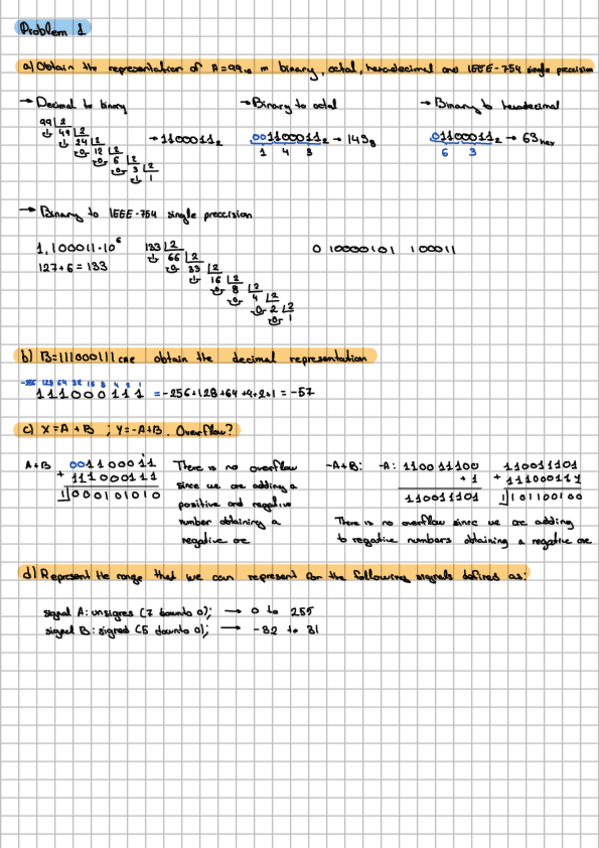 Problem 1
a) Obtain the representation of A=99₁₀ in binary, octal, hexadecimal and IEEE-754 single precision
→ Decimal to binary → Binary to octal → Binary to hexadecimal
99 |2
1 49 |2
1 24 |2
0 12 |2
0 6 |2
0 3 |2
1 1
→ 1100011₂
001100011₂ → 143₈
1 4 3
01100011₂ → 63hex
6 3
→ Binary to IEEE-754 single precision
1,100011·10⁶
127+6=133
133 |2
1 66 |2
0 33 |2
1 16 |2
0 8 |2
0 4 |2
0 2 |2
0 1
0 10000101 100011
b) B=111000111 obtain the decimal representation
-256 128 64 32 16 8 4 2 1
111000111 = -256+128+64+4+2+1 = -57
c) X=A+B ; Y=-A+B. Overflow?
A+B
001100011
+ 111000111
1|000101010
There is no overflow
since we are adding a
positive and negative
number obtaining a
negative one
-A+B: -A: 110011100
+1
110011101
110011101
+ 111000111
1|101100100
There is no overflow since we are adding
to negative numbers obtaining a negative one
d) Represent the range that we can represent for the following signals defined as:
signal A: unsigned (7 downto 0); → 0 to 255
signal B: signed (5 downto 0); → -32 to 31